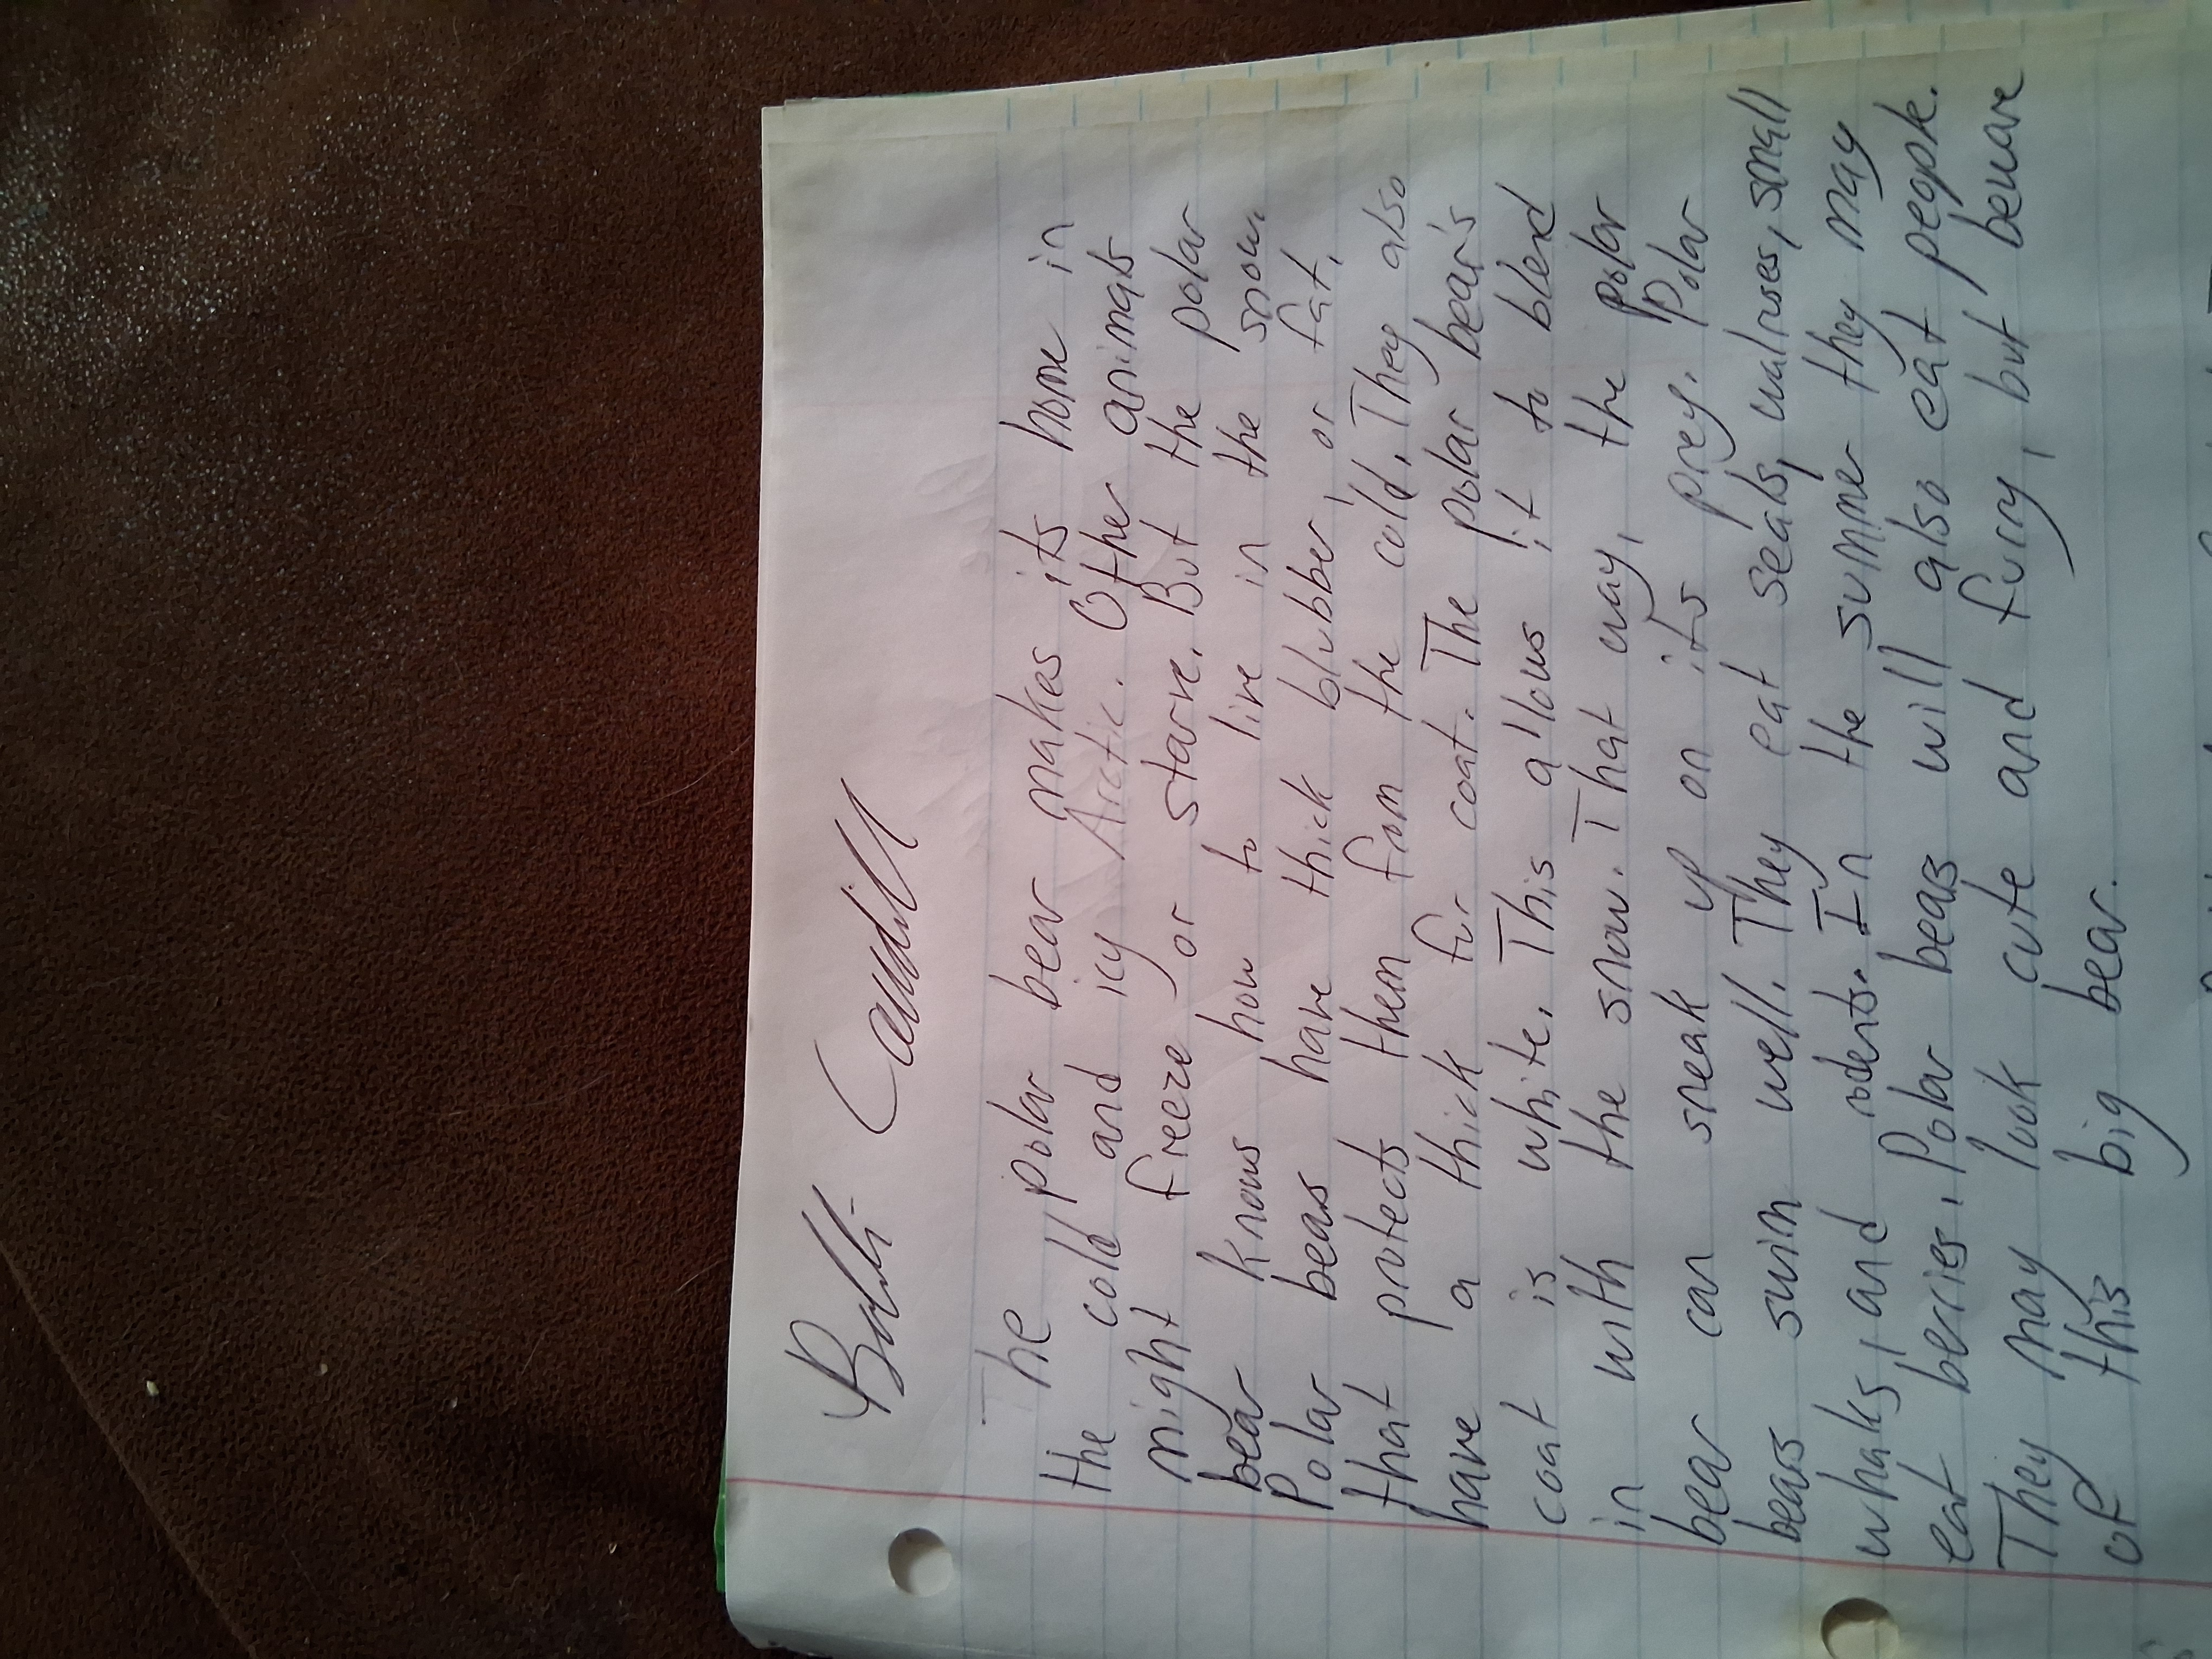 Caudill
The polar bear makes its home in
the cold and icy Arctic. Other animals
might freeze or starve. But the polar
bear knows how to live in the snow.
Polar bears have thick blubber, or fat,
that protects them from the cold. They also
have a thick fur coat. The polar bear's
coat is white. This allows it to blend
in with the snow. That way, the polar
bear can sneak up on its prey. Polar
bears swim well. They eat seals, walruses, small
whales, and rodents. In the summer they may
eat berries. Polar bears will also eat people.
They may look cute and furry, but beware
of this big bear.